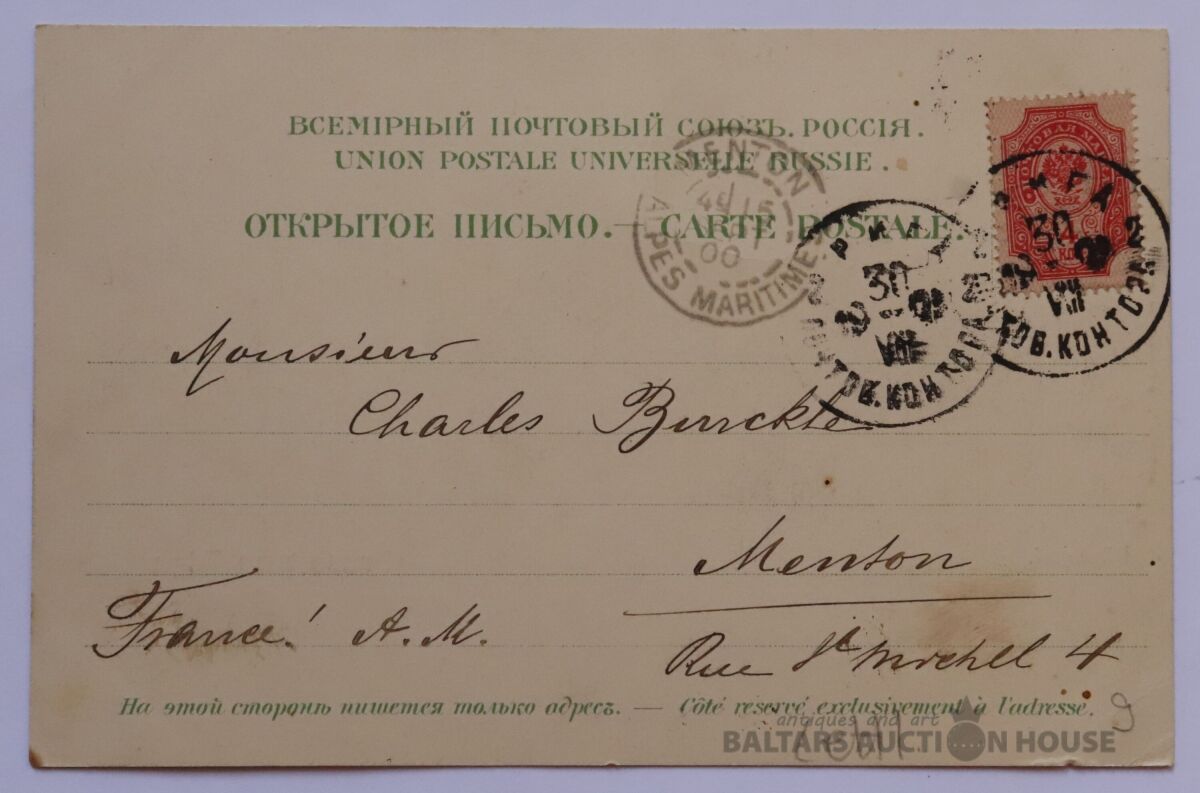 ВСЕМІРНЫЙ ПОЧТОВЫЙ СОЮЗЪ. РОССІЯ.
UNION POSTALE UNIVERSELLE RUSSIE.
ОТКРЫТОЕ ПИСЬМО. — CARTE POSTALE.
ПОЧТОВАЯ МАР
4 КОП
MENTON
15
00
ALPES MARITIMES
РИГА
30
VIII
ПОЧТОВ. КОНТОРА
РИГА
30
VIII
ТОВ. КОНТОРА
Monsieur
Charles Burckle
Menton
France! A.M.
Rue St Michel 4
На этой сторонѣ пишется только адресъ. — Côté reservé exclusivement à l'adresse.
antiques and art
BALTARS AUCTION HOUSE